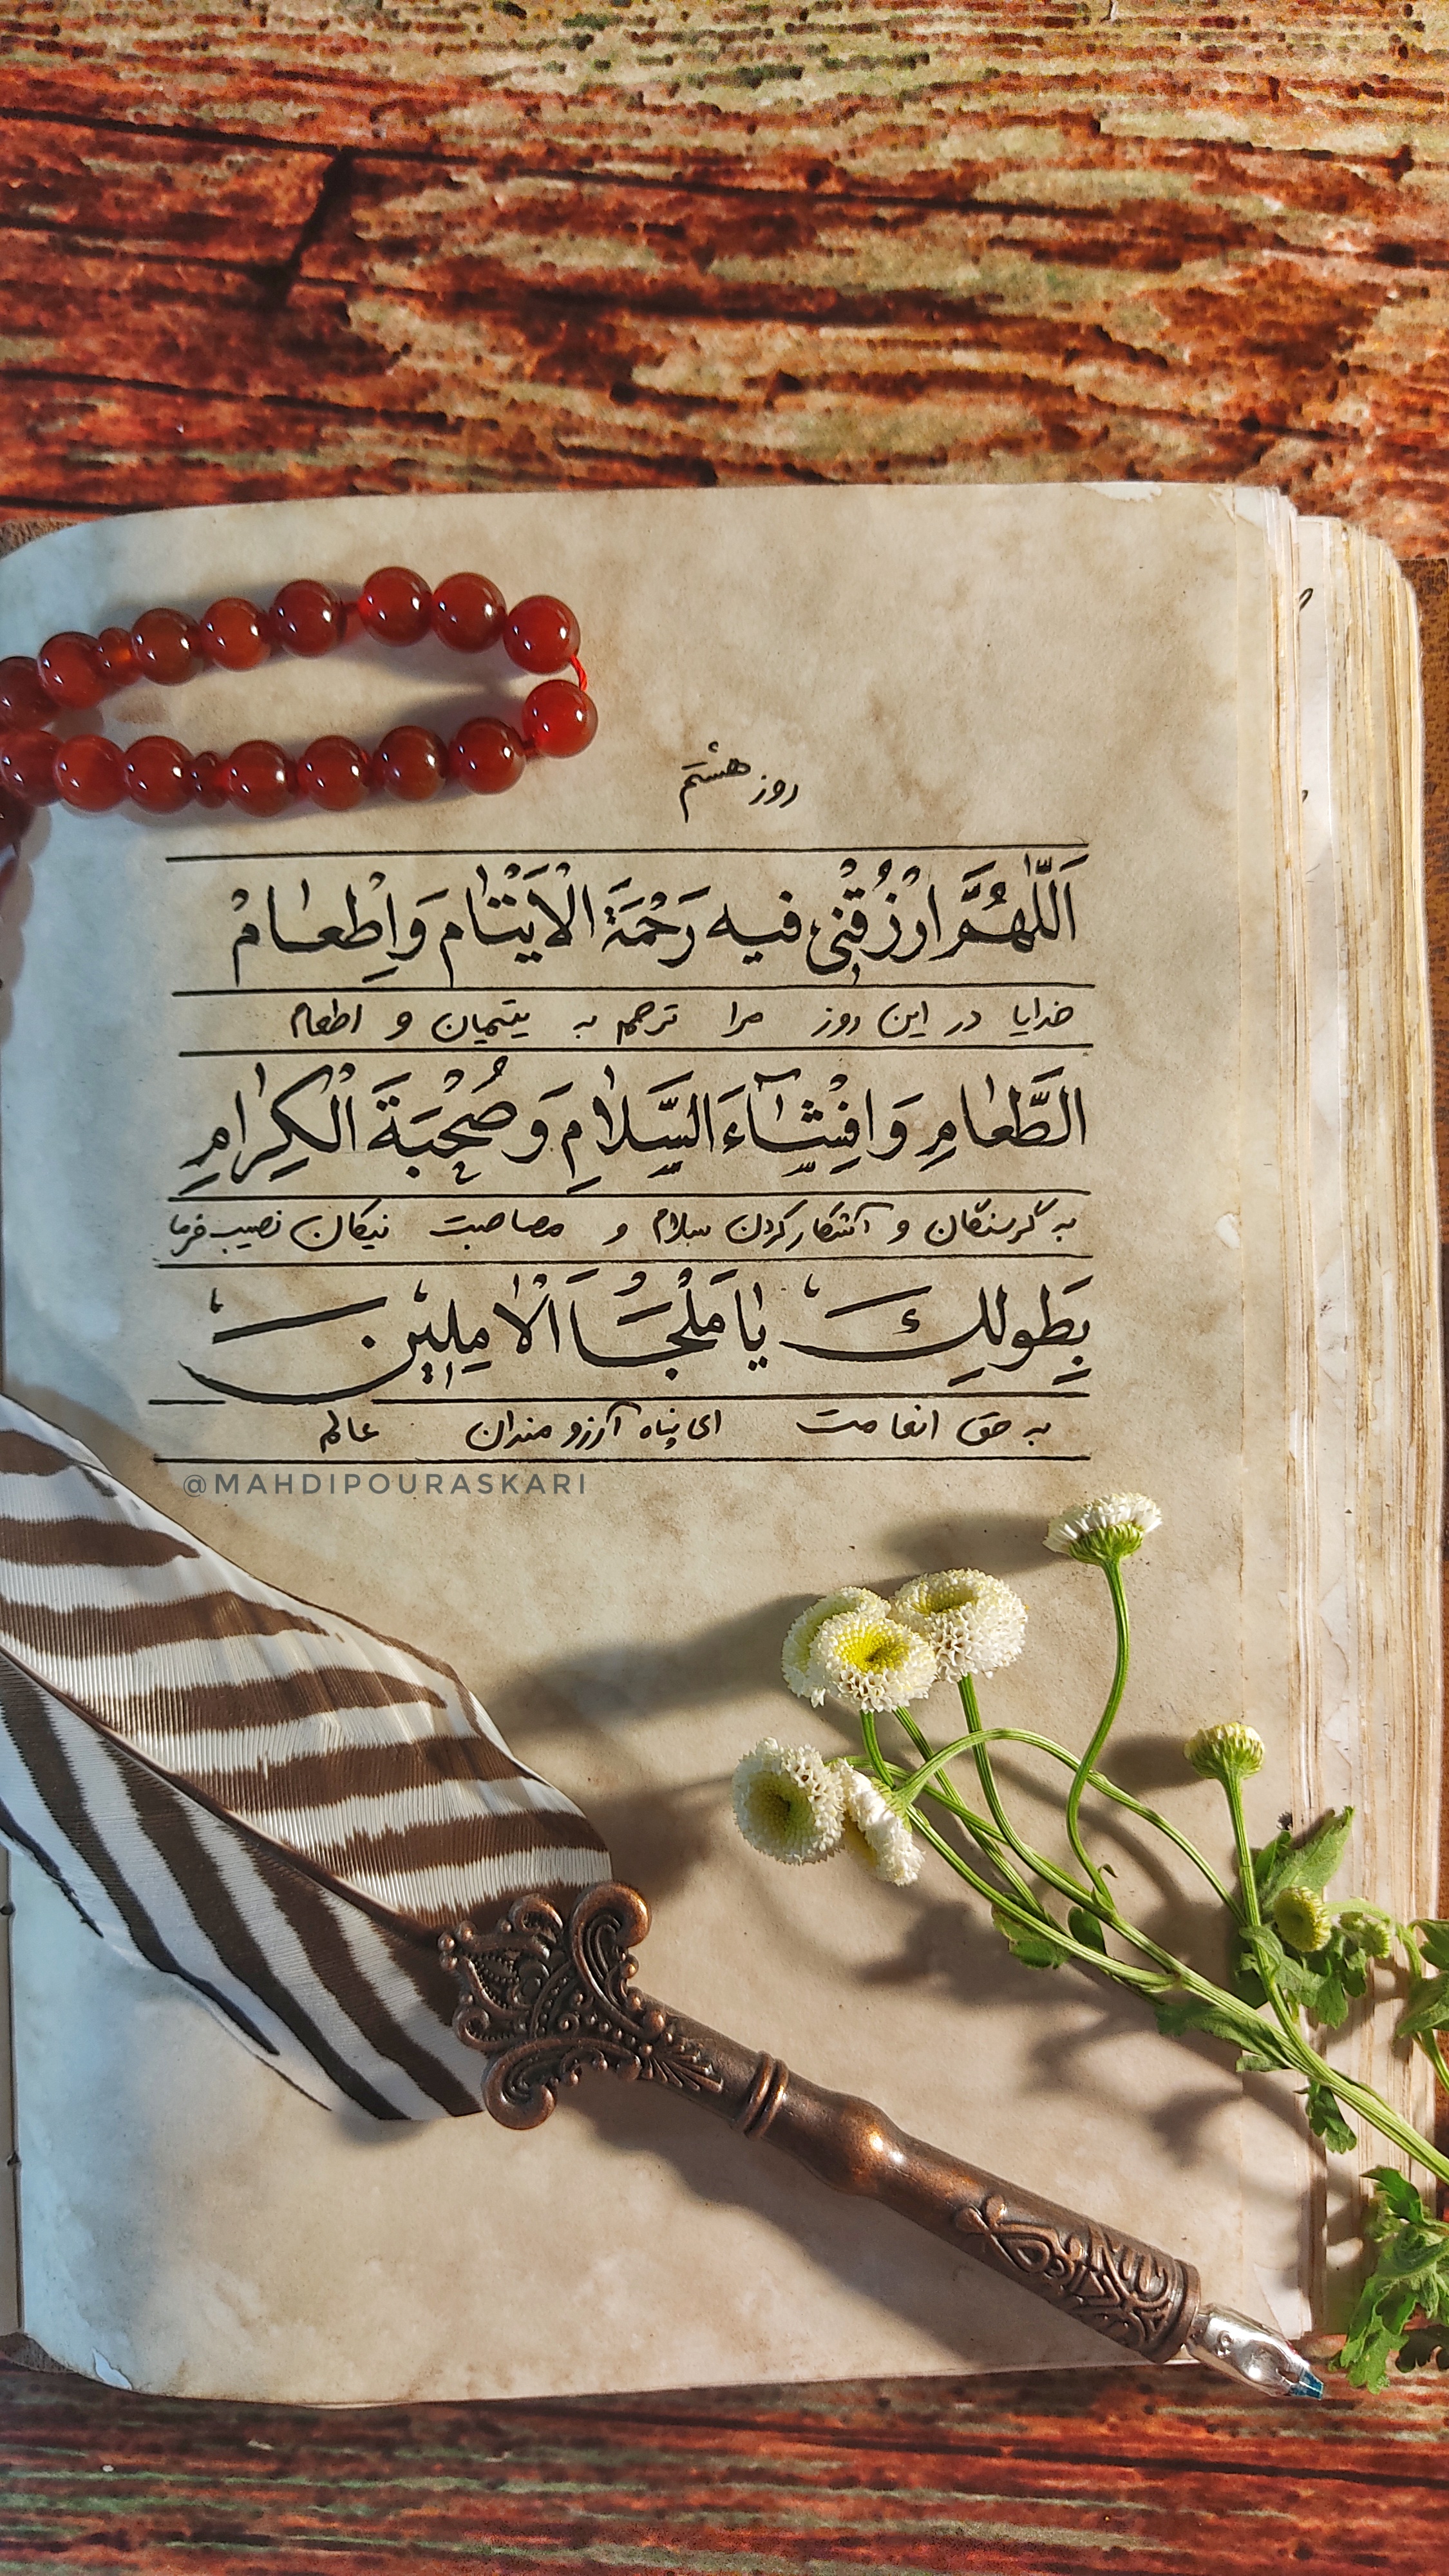 روز هشتم
اَللّٰهُمَّ ارْزُقْنی فیه رَحْمَةَ الْاَیْتٰامَ وَاِطْعٰامْ
خدایا در این روز مرا ترحم به یتیمان و اطعام
الطَّعٰامِ وَ اِفْشٰآءَ السَّلاٰمِ وَ صُحْبَةَ الْکِرٰامِ
به گرسنگان و آشکار کردن سلام و مصاحبت نیکان نصیب فرما
بِطولِكَ یٰا مَلْجَأَ الْاٰمِلینَ
به حق انعامت ای پناه آرزومندان عالم
@MAHDIPOURASKARI